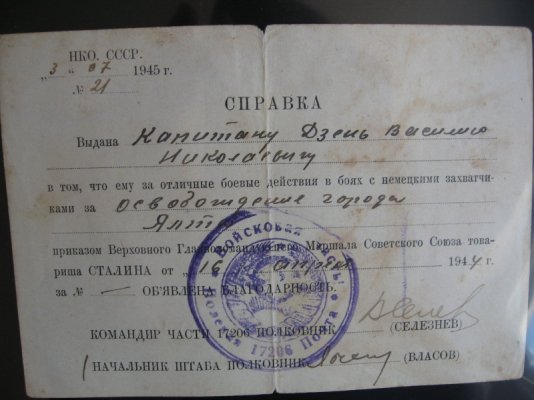 НКО. СССР.
„3 “ 07 1945 г.
№ 21
СПРАВКА
Выдана Капитану Дзень Василию
Николаевичу
в том, что ему за отличные боевые действия в боях с немецкими захватчи-
ками за освобождение города
Ялта
приказом Верховного Главнокомандующего Маршала Советского Союза това-
рища СТАЛИНА от „16 апреля 1944 г.
за № — ОБ'ЯВЛЕНА БЛАГОДАРНОСТЬ.
КОМАНДИР ЧАСТИ 17206 ПОЛКОВНИК (СЕЛЕЗНЕВ)
НАЧАЛЬНИК ШТАБА ПОЛКОВНИК (ВЛАСОВ)
Войсковая часть
Полевая Почта
17206